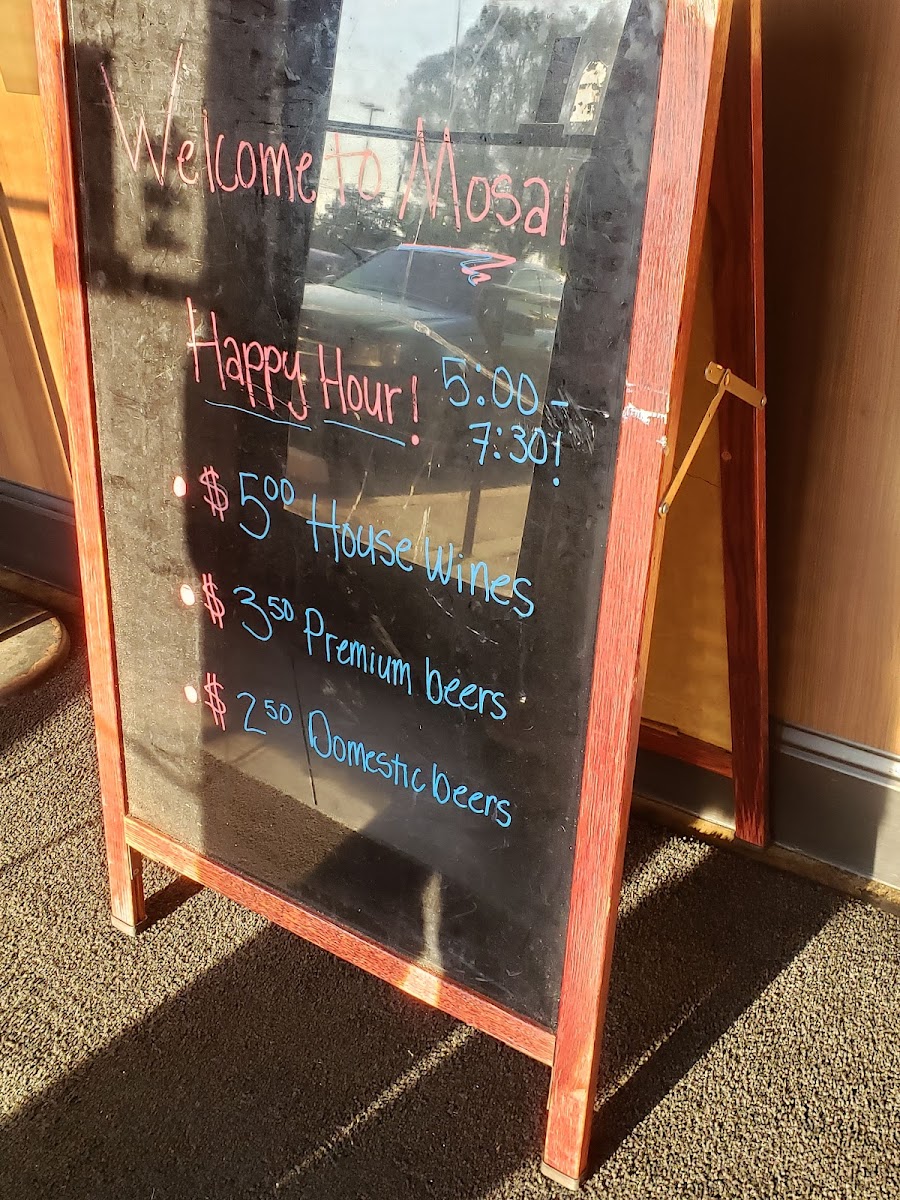 Welcome to Mosai
Happy Hour! 5:00-
7:30!
$5⁰⁰ House Wines
$3⁵⁰ Premium beers
$2⁵⁰ Domestic beers